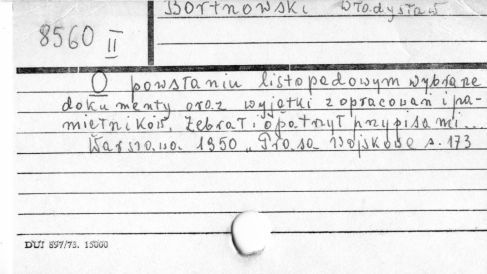 Bortnowski Władysław
8560 II
O powstaniu listopadowym wybrane
dokumenty oraz wyjątki z opracowań i pa-
miętników. Zebrał i opatrzył przypisami...
Warszawa 1950 „Prasa Wojskowa" s. 173
DUJ 897/75. 15000